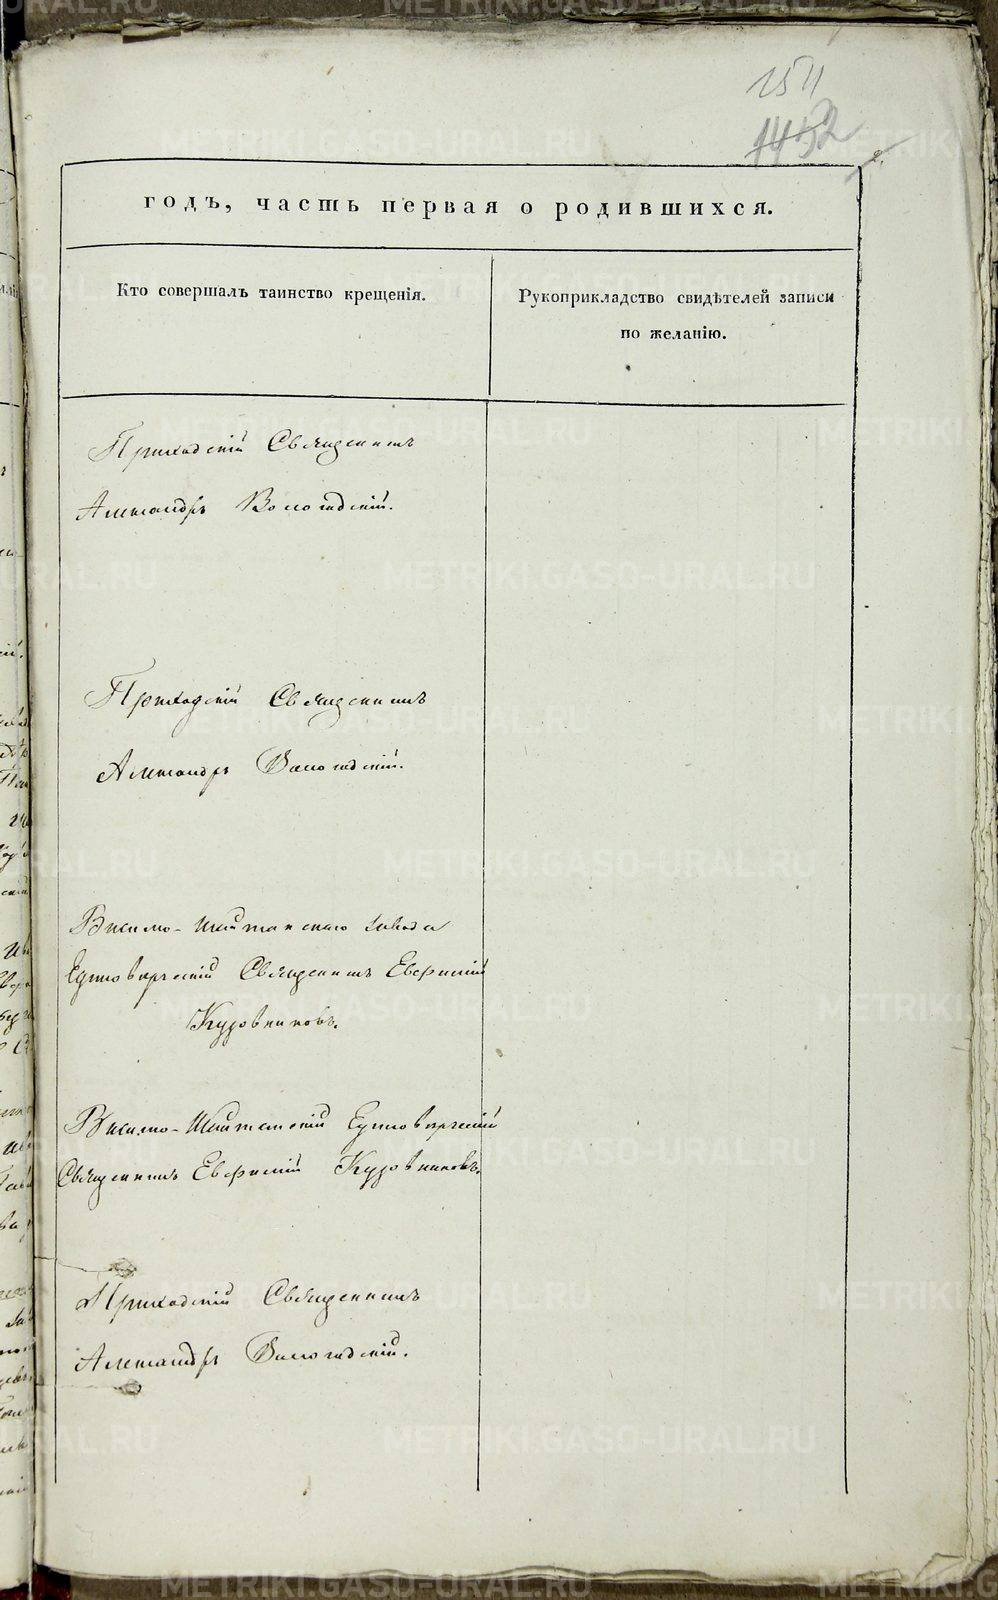 1511
1452
2.
годъ, часть первая о родившихся.
Кто совершалъ таинство крещенія.
Рукоприкладство свидѣтелей записи
по желанію.
Приходскій Священникъ
Александръ Вологодскій.
Приходскій Священникъ
Александръ Вологодскій.
Висимо-Шайтанскаго завода
Единовѣрческій Священникъ Евфимій
Кузовниковъ.
Висимо-Шайтанскій Единовѣрческій
Священникъ Евфимій Кузовниковъ.
Приходскій Священникъ
Александръ Вологодскій.
METRIKI.GASO-URAL.RU